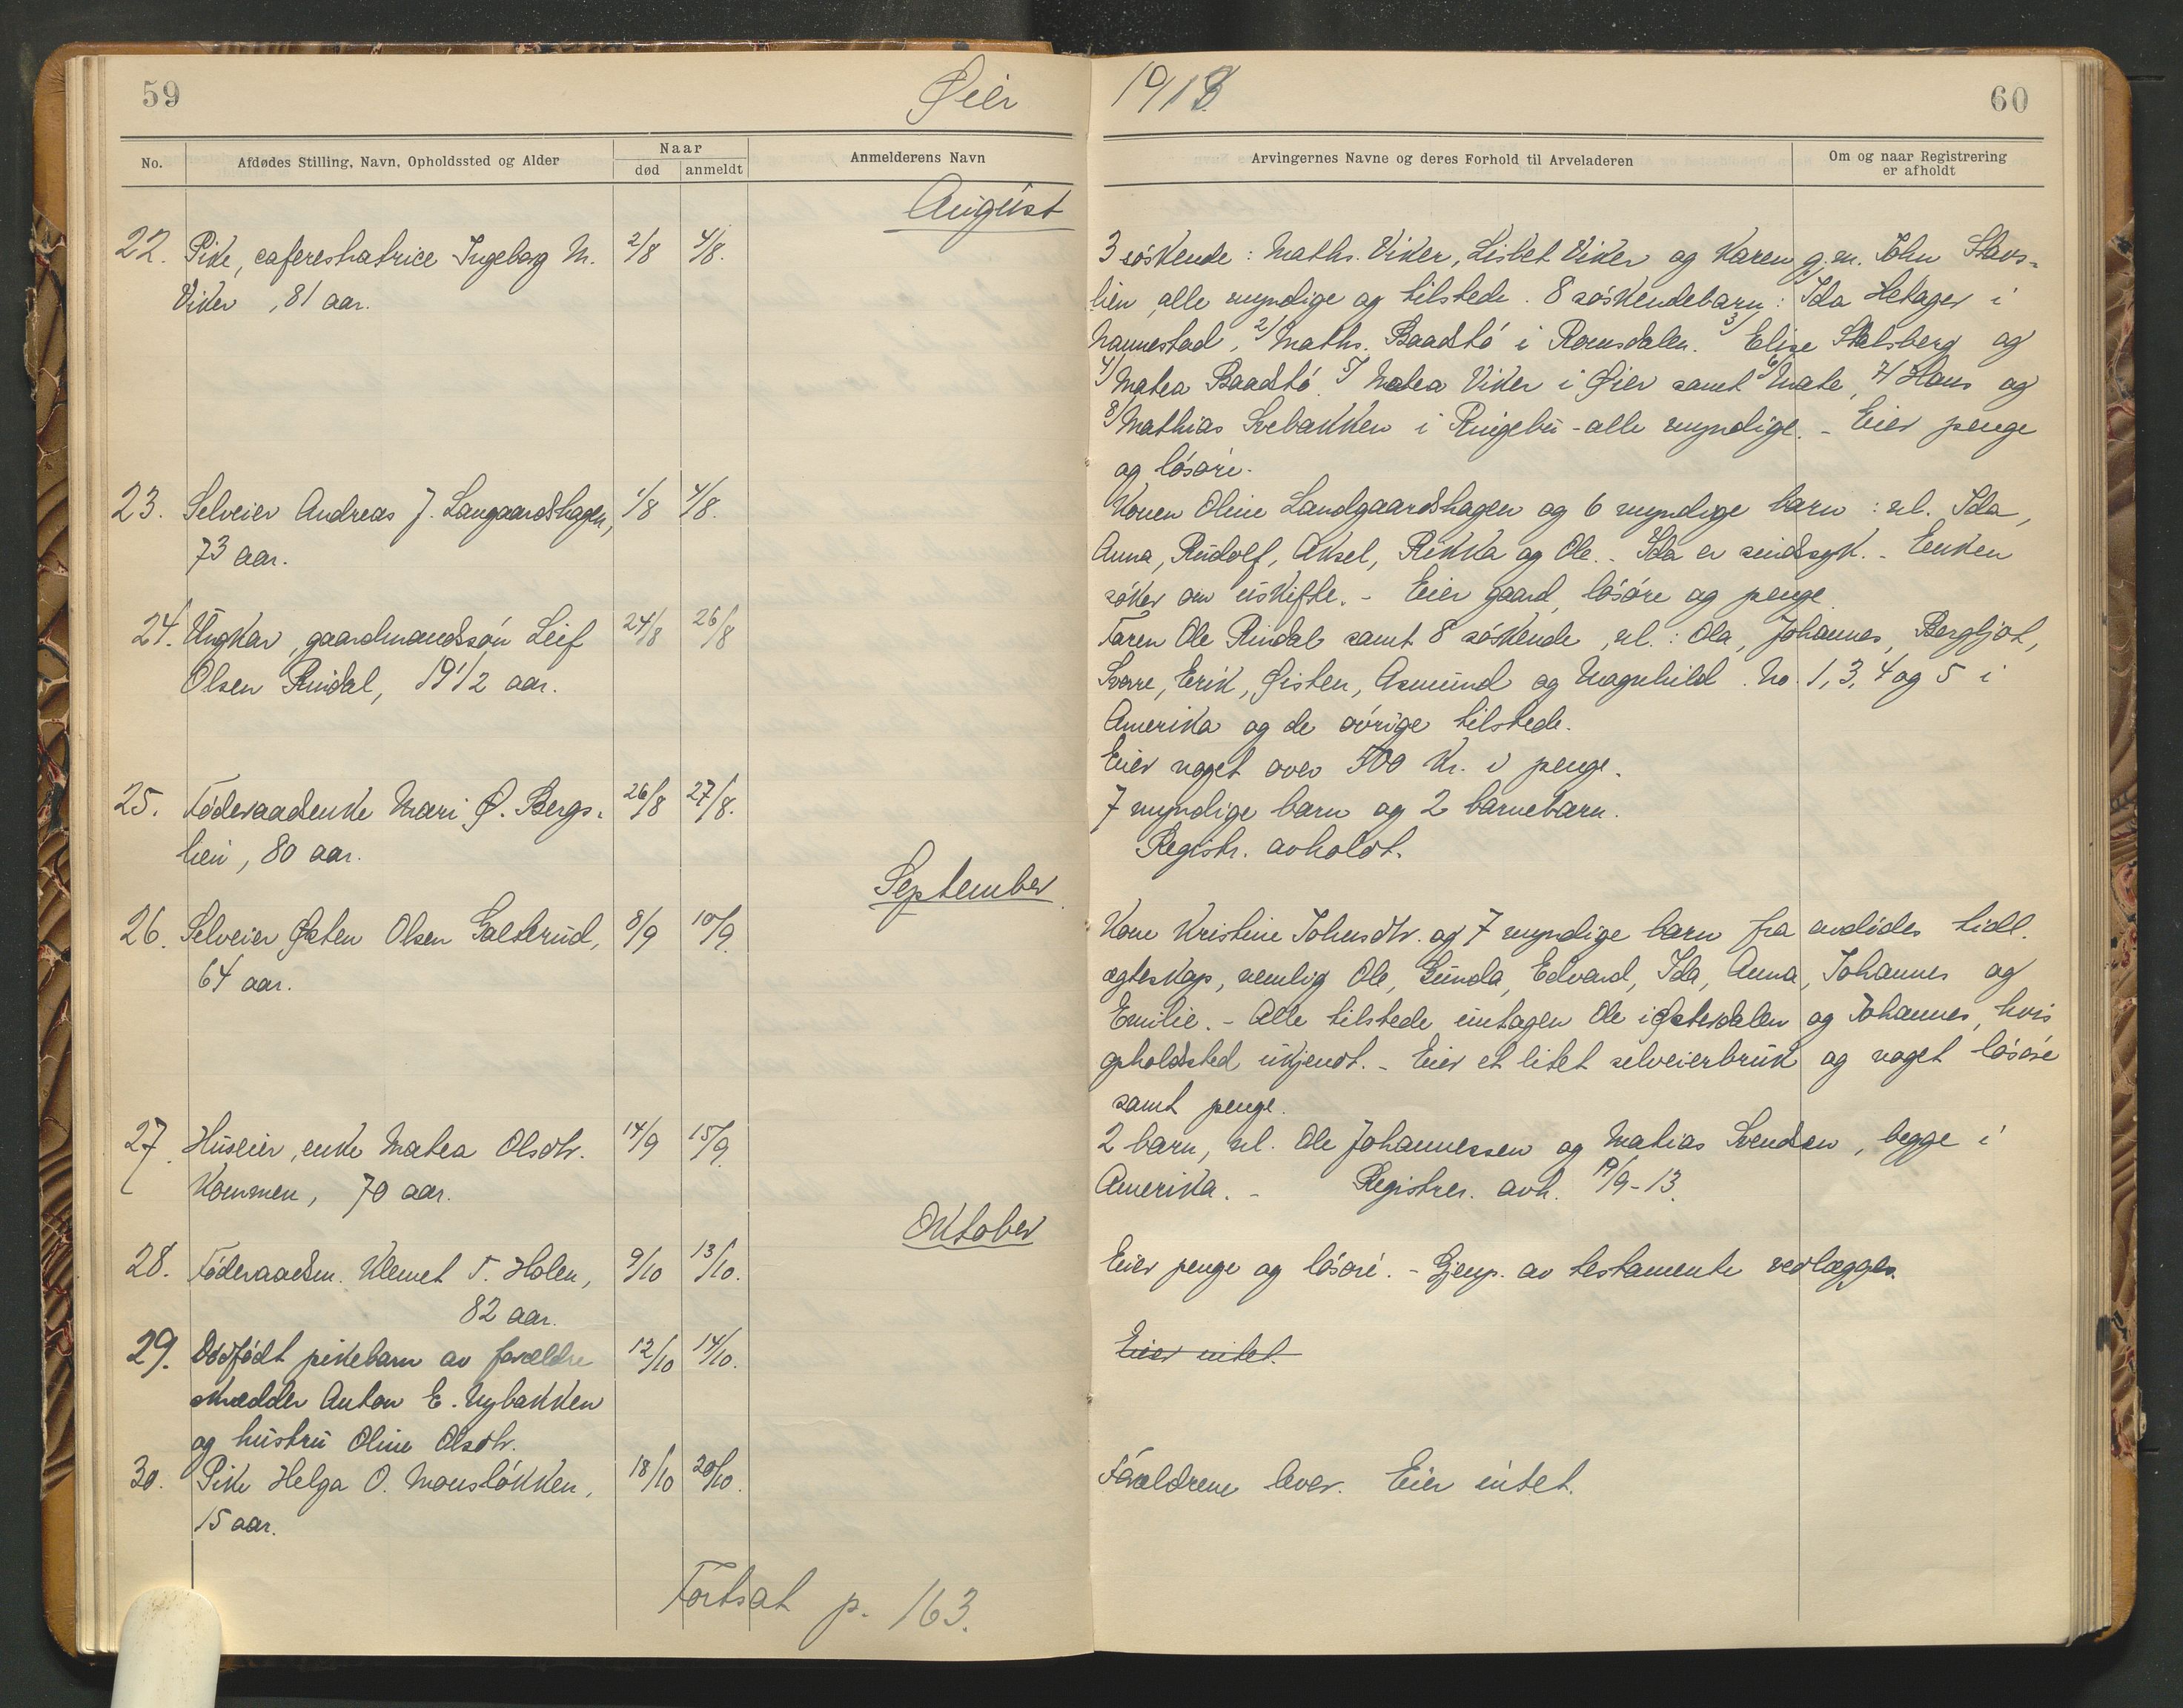 59
Øier
No.
Afdødes Stilling, Navn, Opholdssted og Alder
Naar
død
anmeldt
Anmelderens Navn
August
22. Pike, caferestratrice Ingeborg M. 2/8 4/8.
Viker, 81 aar.
23. Selveier Andreas J. Langaardshagen, 1/8 4/8.
73 aar.
24. Ungkar, gaardmandssøn Leif 24/8 26/8
Olsen Rindal, 19 1/2 aar.
25. Føderaadsenke Mari Ø. Bergs- 26/8 27/8.
lien, 80 aar.
September
26. Selveier Østen Olsen Galterud, 8/9 10/9
64 aar.
27. Huseier, enke Matea Olsdtr. 14/9 15/9
Kommen, 70 aar.
Oktober
28. Føderaadsm. Klemet T. Holen, 9/10 13/10.
82 aar.
29. Dødfødt pikebarn av forældre 12/10 14/10.
skrædder Anton E. Nybakken
og hustru Oline Olsdtr.
30. Pike Helga O. Mousløkken, 18/10 20/10.
15 aar.
Fortsat p. 163.
1913.
60
Arvingernes Navne og deres Forhold til Arveladeren
Om og naar Registrering
er afholdt
3 søskende: Maths. Viker, Lisbet Viker og Karen g.m. John Stavs-
lien, alle myndige og tilstede. 8 søskendebarn: Ida Hetager i
Nannestad, 2) Maths. Baadstø i Romsdalen. 3) Elise Stalsberg og
4) Matea Baadstø. 5) Matea Viker i Øier samt 6) Mate, 7) Hans og
8) Mathias Svebakken i Ringebu - alle myndige. - Eier penge
og løsøre.
Konen Oline Landgaardshagen og 6 myndige barn: nl. Ida,
Anna, Rudolf, Aksel, Rikka og Ole. - Ida er sindssyk. - Enken
søker om uskifte. - Eier gaard, løsøre og penge
Faren Ole Rindal samt 8 søskende, nl.: Ola, Johannes, Bergljot,
Sverre, Erik, Øisten, Asmund og Magnhild. No. 1, 3, 4 og 5 i
Amerika og de øvrige tilstede.
Eier noget over 500 Kr. i penge.
7 myndige barn og 2 barnebarn.
Registr. avholdt.
Kone Kristine Johnsdtr. og 7 myndige barn fra avdødes tidl.
egteskap, nemlig Ole, Gunda, Edvard, Ida, Anna, Johannes og
Emilie. - Alle tilstede untagen Ole i Østerdalen og Johannes, hvis
opholdssted ukjendt. - Eier et litet selveierbruk og noget løsøre
samt penge.
2 barn, nl. Ole Johannessen og Matias Svendsen, begge i
Amerika. - Registrer. avh. 19/9-13.
Eier penge og løsøre. - Gjenp. av testamente vedlægges.
Eier intet.
Forældrene lever. Eier intet.